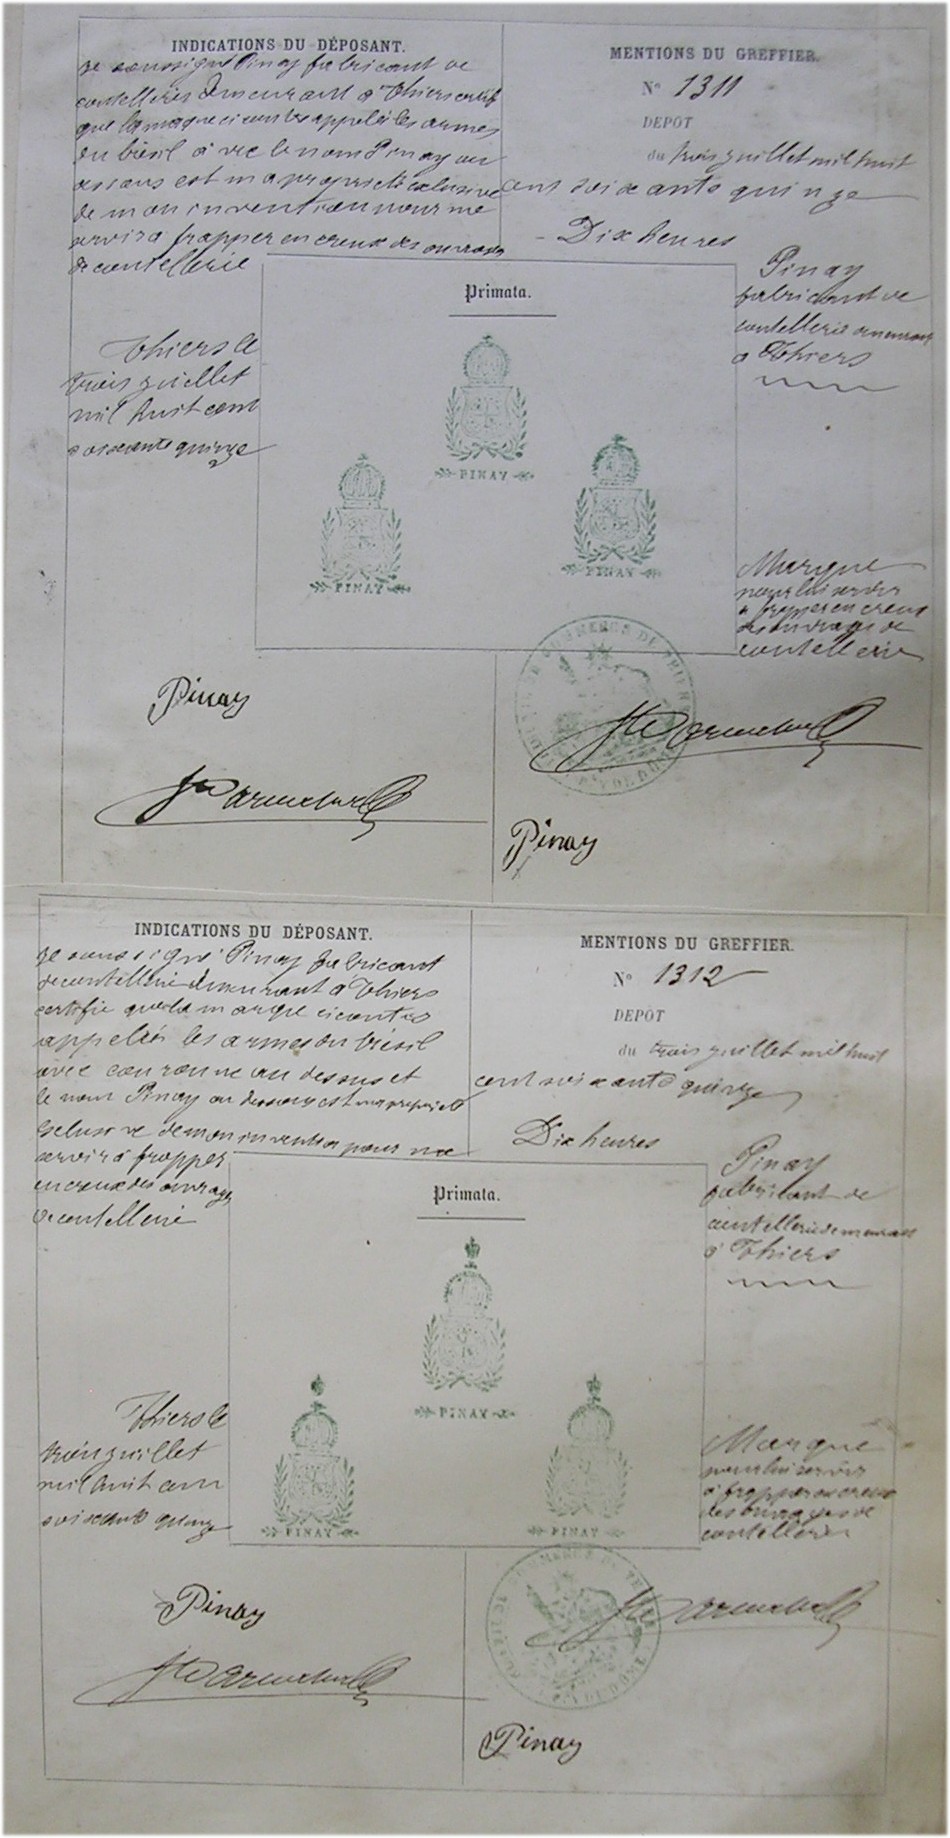 INDICATIONS DU DÉPOSANT.
je soussigné Pinay fabricant de
coutelleries demeurant à Thiers certif
que la marque ci contre appelée les armes
du brésil avec le nom Pinay au
dessous est ma propriété exclusive
de mon invention pour me
servir à frapper en creux des ouvrages
de coutellerie
Thiers le
trois juillet
mil huit cent
soixante quinze
MENTIONS DU GREFFIER.
N° 1311
DEPÔT
du trois juillet mil huit
cent soixante quinze
- Dix heures
Pinay
fabricant de
coutellerie demeurant
à Thiers
Marque
pour lui servir
à frapper en creux
des ouvrages de
coutellerie
Primata.
PINAY
PINAY
PINAY
TRIBUNAL DE COMMERCE DE THIERS
PUY DE DOME
Pinay
Pinay
INDICATIONS DU DÉPOSANT.
je soussigné Pinay fabricant
de coutellerie demeurant à Thiers
certifie que la marque ci contre
appelée les armes du brésil
avec couronne au dessus et
le nom Pinay au dessous est ma propriété
exclusive de mon invention pour me
servir à frapper
en creux des ouvrages
de coutellerie
Thiers le
trois juillet
mil huit cent
soixante quinze
MENTIONS DU GREFFIER.
N° 1312
DEPÔT
du trois juillet mil huit
cent soixante quinze
Dix heures
Pinay
fabricant de
coutellerie demeurant
à Thiers
Marque
pour lui servir
à frapper en creux
des ouvrages de
coutellerie
Primata.
PINAY
PINAY
PINAY
Pinay
Pinay